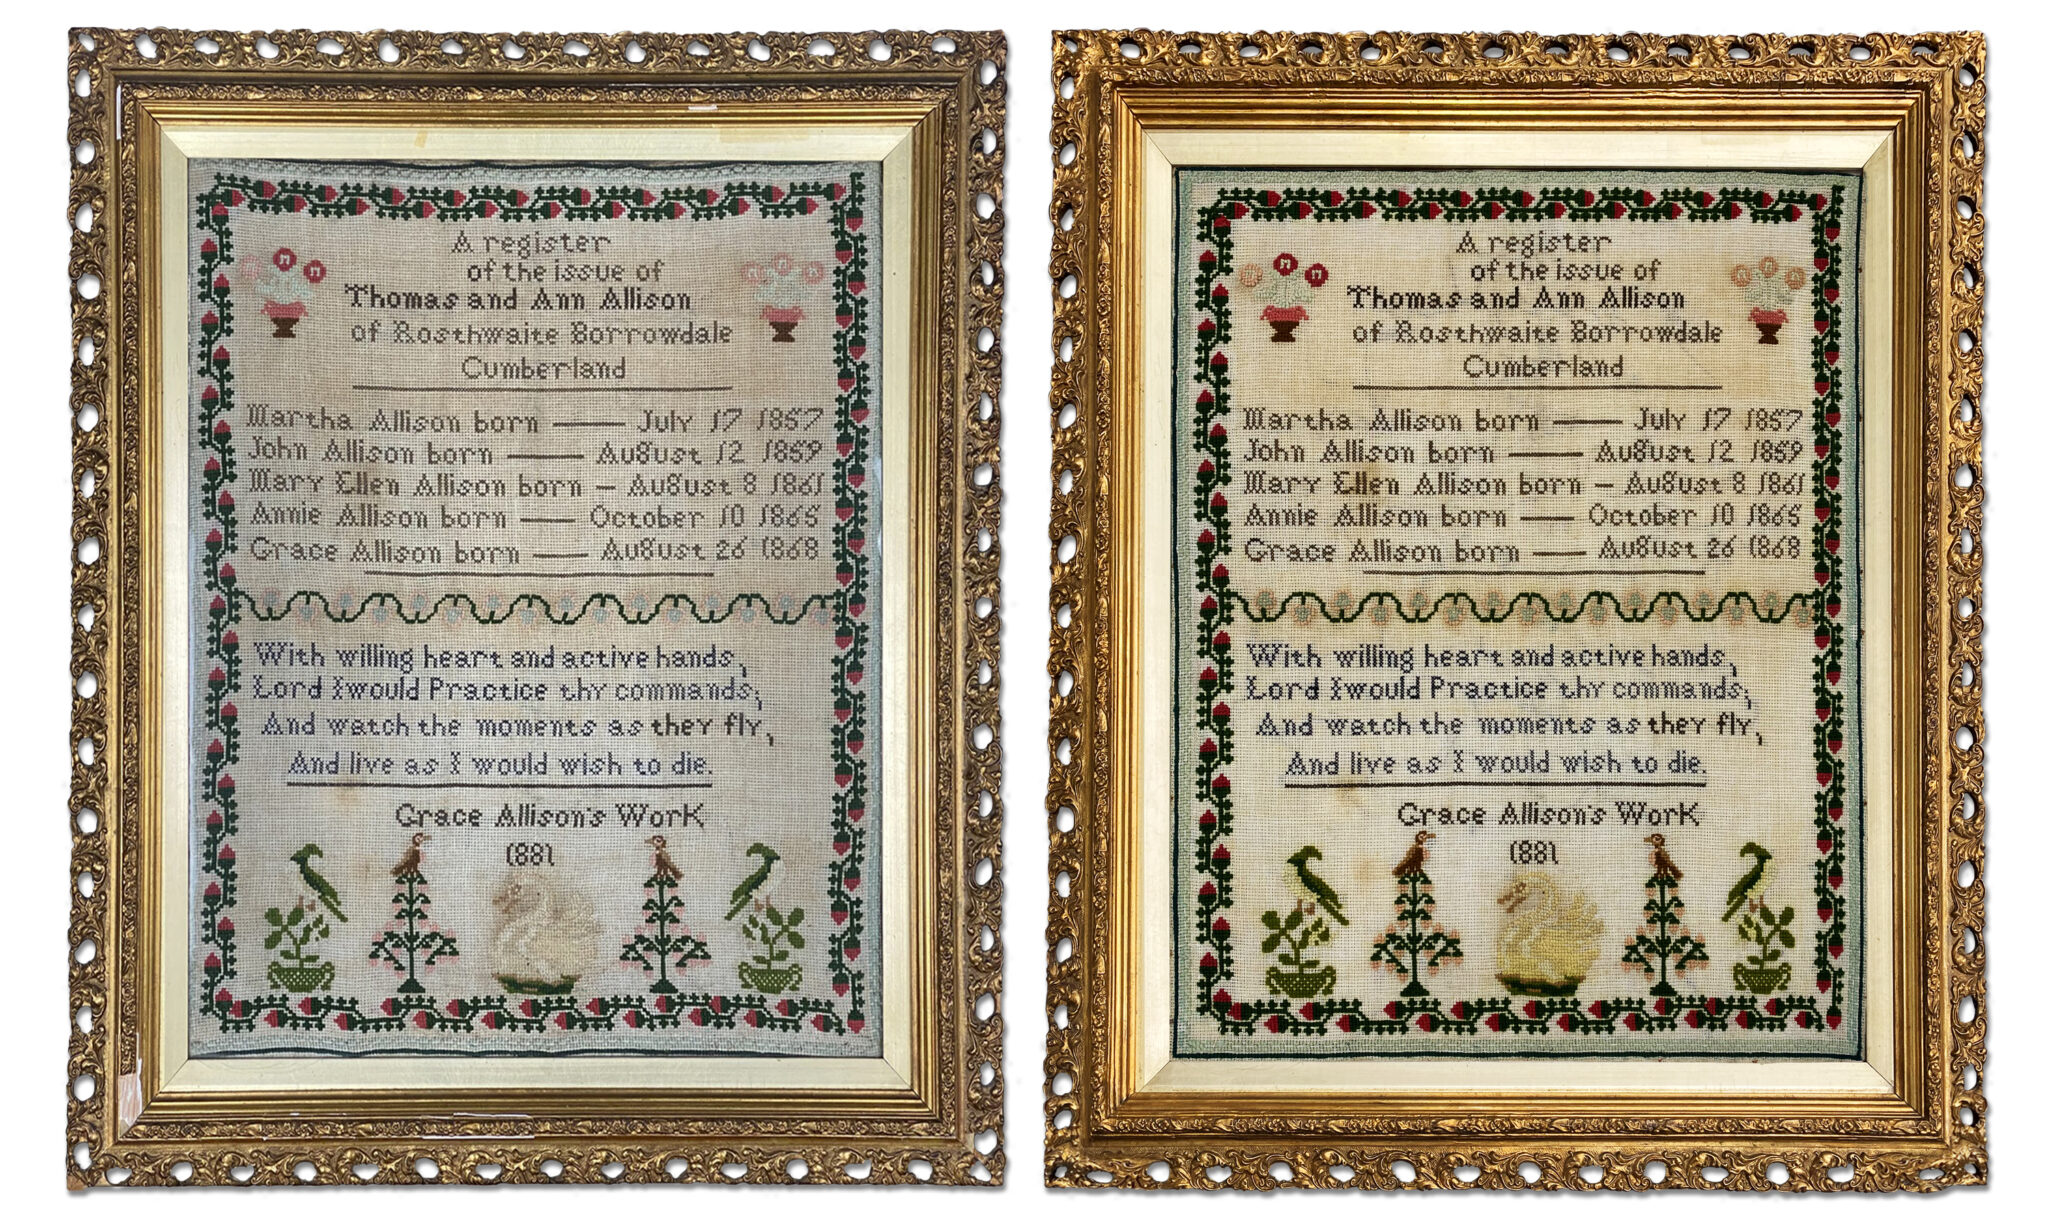 A register
of the issue of
Thomas and Ann Allison
of Rosthwaite Borrowdale
Cumberland
Martha Allison born — July 17 1857
John Allison born — August 12 1859
Mary Ellen Allison born – August 8 1861
Annie Allison born — October 10 1865
Grace Allison born — August 26 1868
With willing heart and active hands,
Lord I would Practice thy commands,
And watch the moments as they fly,
And live as I would wish to die.
Grace Allison's Work
1881
A register
of the issue of
Thomas and Ann Allison
of Rosthwaite Borrowdale
Cumberland
Martha Allison born — July 17 1857
John Allison born — August 12 1859
Mary Ellen Allison born – August 8 1861
Annie Allison born — October 10 1865
Grace Allison born — August 26 1868
With willing heart and active hands,
Lord I would Practice thy commands,
And watch the moments as they fly,
And live as I would wish to die.
Grace Allison's Work
1881